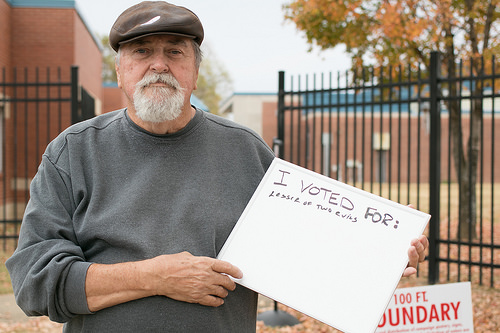 I VOTED FOR:
Lessir of Two evils
100 FT.
OUNDARY